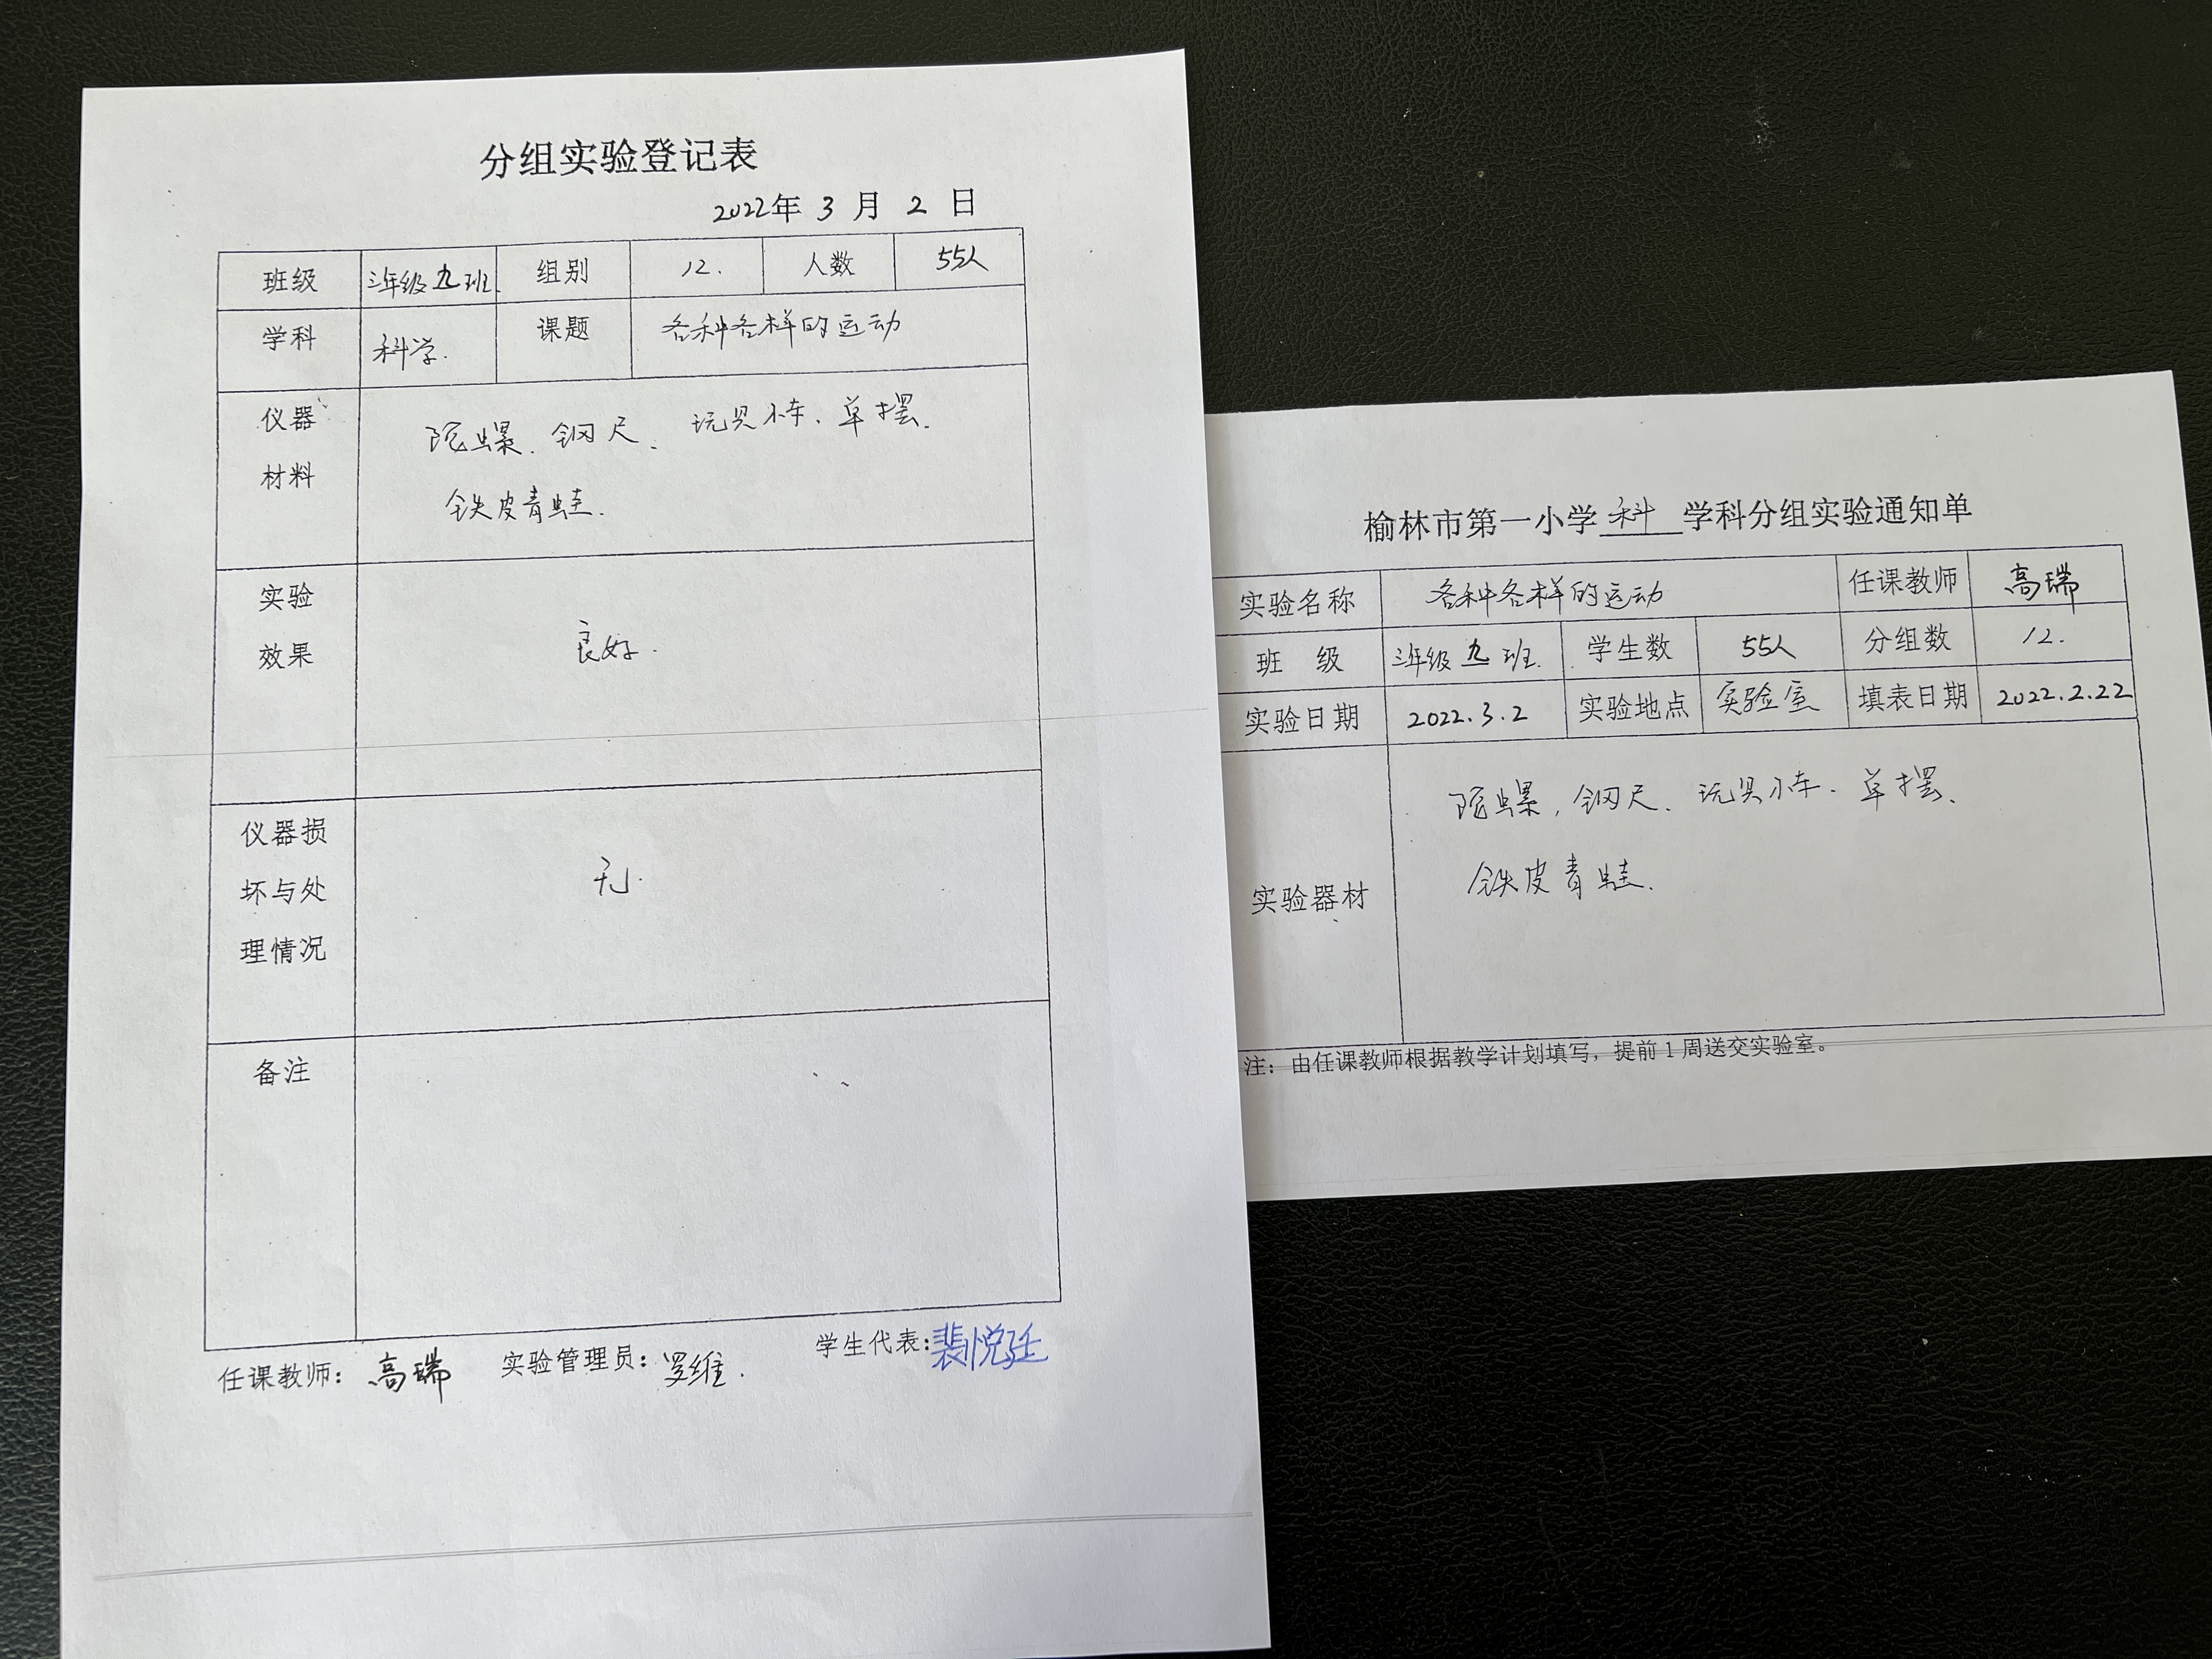 分组实验登记表
2022年 3 月 2 日
班级 三年级九班. 组别 12. 人数 55人
学科 科学. 课题 各种各样的运动
仪器材料 陀螺、钢尺、玩具小车、单摆、
铁皮青蛙.
实验效果 良好.
仪器损坏与处理情况 无.
备注
任课教师: 高瑞 实验管理员: 罗维. 学生代表: 裴悦廷
榆林市第一小学 科 学科分组实验通知单
实验名称 各种各样的运动 任课教师 高瑞
班 级 三年级九班. 学生数 55人 分组数 12.
实验日期 2022.3.2 实验地点 实验室 填表日期 2022.2.22
实验器材 陀螺, 钢尺、玩具小车、单摆、
铁皮青蛙.
注: 由任课教师根据教学计划填写, 提前1周送交实验室。